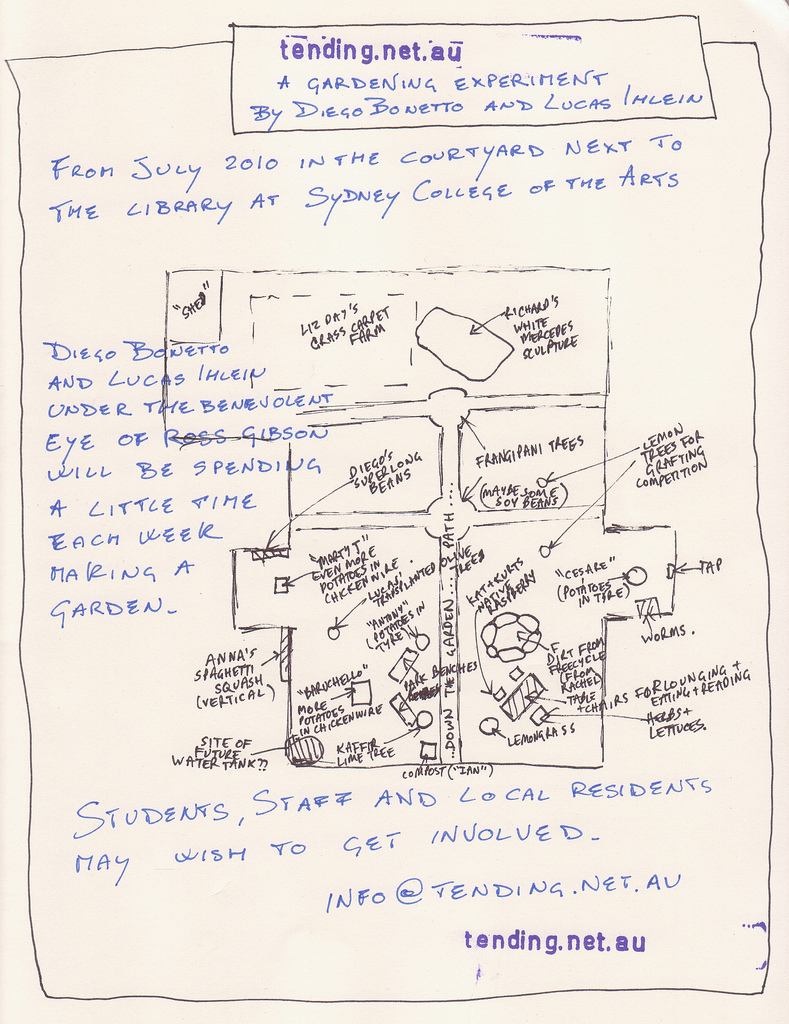 tending.net.au
A GARDENING EXPERIMENT
BY DIEGO BONETTO AND LUCAS IHLEIN
FROM JULY 2010 IN THE COURTYARD NEXT TO
THE LIBRARY AT SYDNEY COLLEGE OF THE ARTS
"SHED"
LIZ DAY'S
GRASS CARPET
FARM
RICHARD'S
WHITE
MERCEDES
SCULPTURE
DIEGO BONETTO
AND LUCAS IHLEIN
UNDER THE BENEVOLENT
EYE OF ROSS GIBSON
WILL BE SPENDING
A LITTLE TIME
EACH WEEK
MAKING A
GARDEN.
DIEGO'S
SUPERLONG
BEANS
FRANGIPANI TREES
(MAYBE SOME
SOY BEANS)
LEMON
TREES FOR
GRAFTING
COMPETITION
"MARTY T"
EVEN MORE
POTATOES IN
CHICKENWIRE
LUCAS'
TRANSPLANTED OLIVE
TREES
"ANTONY"
(POTATOES IN
TYRE)
KATH+KURT'S
NATIVE
RASPBERRY
"CESARE"
(POTATOES
IN TYRE)
TAP
WORMS.
ANNA'S
SPAGHETTI
SQUASH
(VERTICAL)
"BARUCHELLO"
MORE
POTATOES
IN CHICKENWIRE
PARK BENCHES
DIRT FROM
FREECYCLE
(FROM
RACHEL)
TABLE
+CHAIRS FOR LOUNGING +
EATING + READING
HERBS+
LETTUCES.
LEMONGRASS
SITE OF
FUTURE
WATER TANK??
KAFFIR
LIME TREE
COMPOST ("IAN")
...DOWN THE GARDEN PATH...
STUDENTS, STAFF AND LOCAL RESIDENTS
MAY WISH TO GET INVOLVED.
INFO@TENDING.NET.AU
tending.net.au